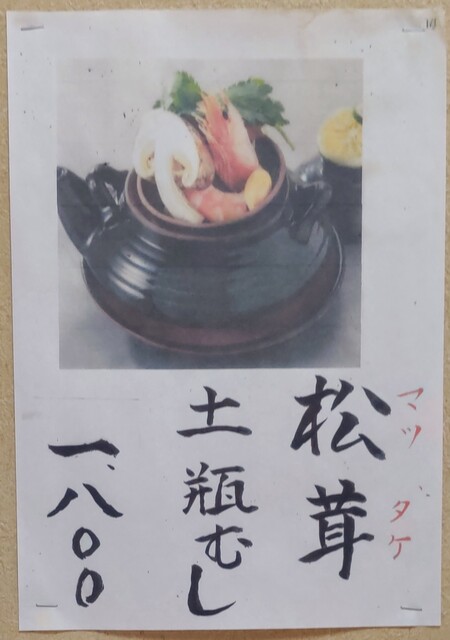 松茸
マツ タケ
土瓶むし
一、八〇〇